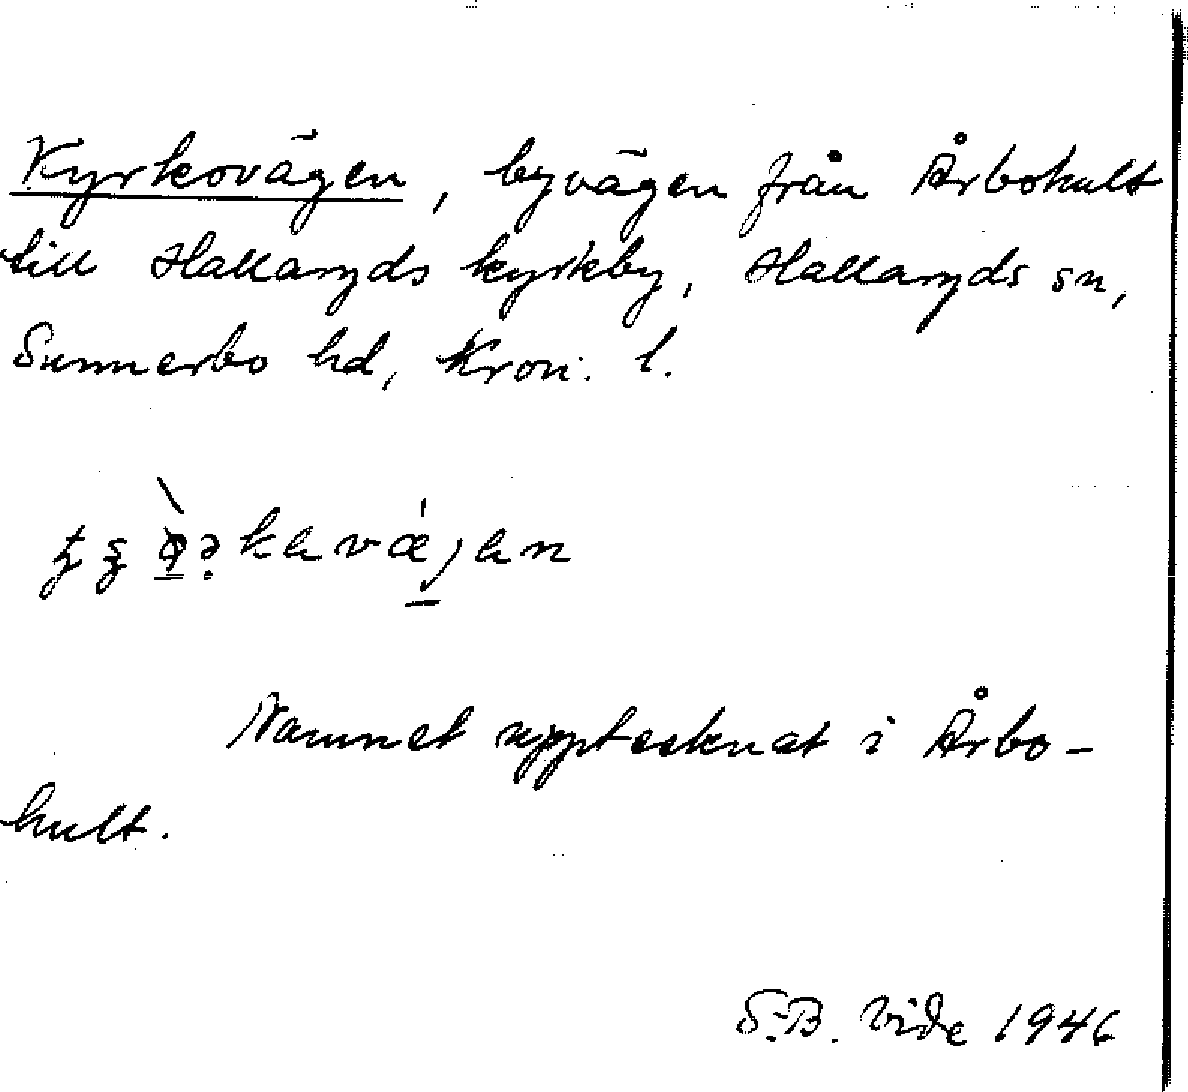 Kyrkovägen, byvägen från Årbohult
till Hallaryds kyrkby, Hallaryds sn,
Sunnerbo hd, Kron. l.
Namnet upptecknat i Årbo-
hult.
S.-B. Vide 1946